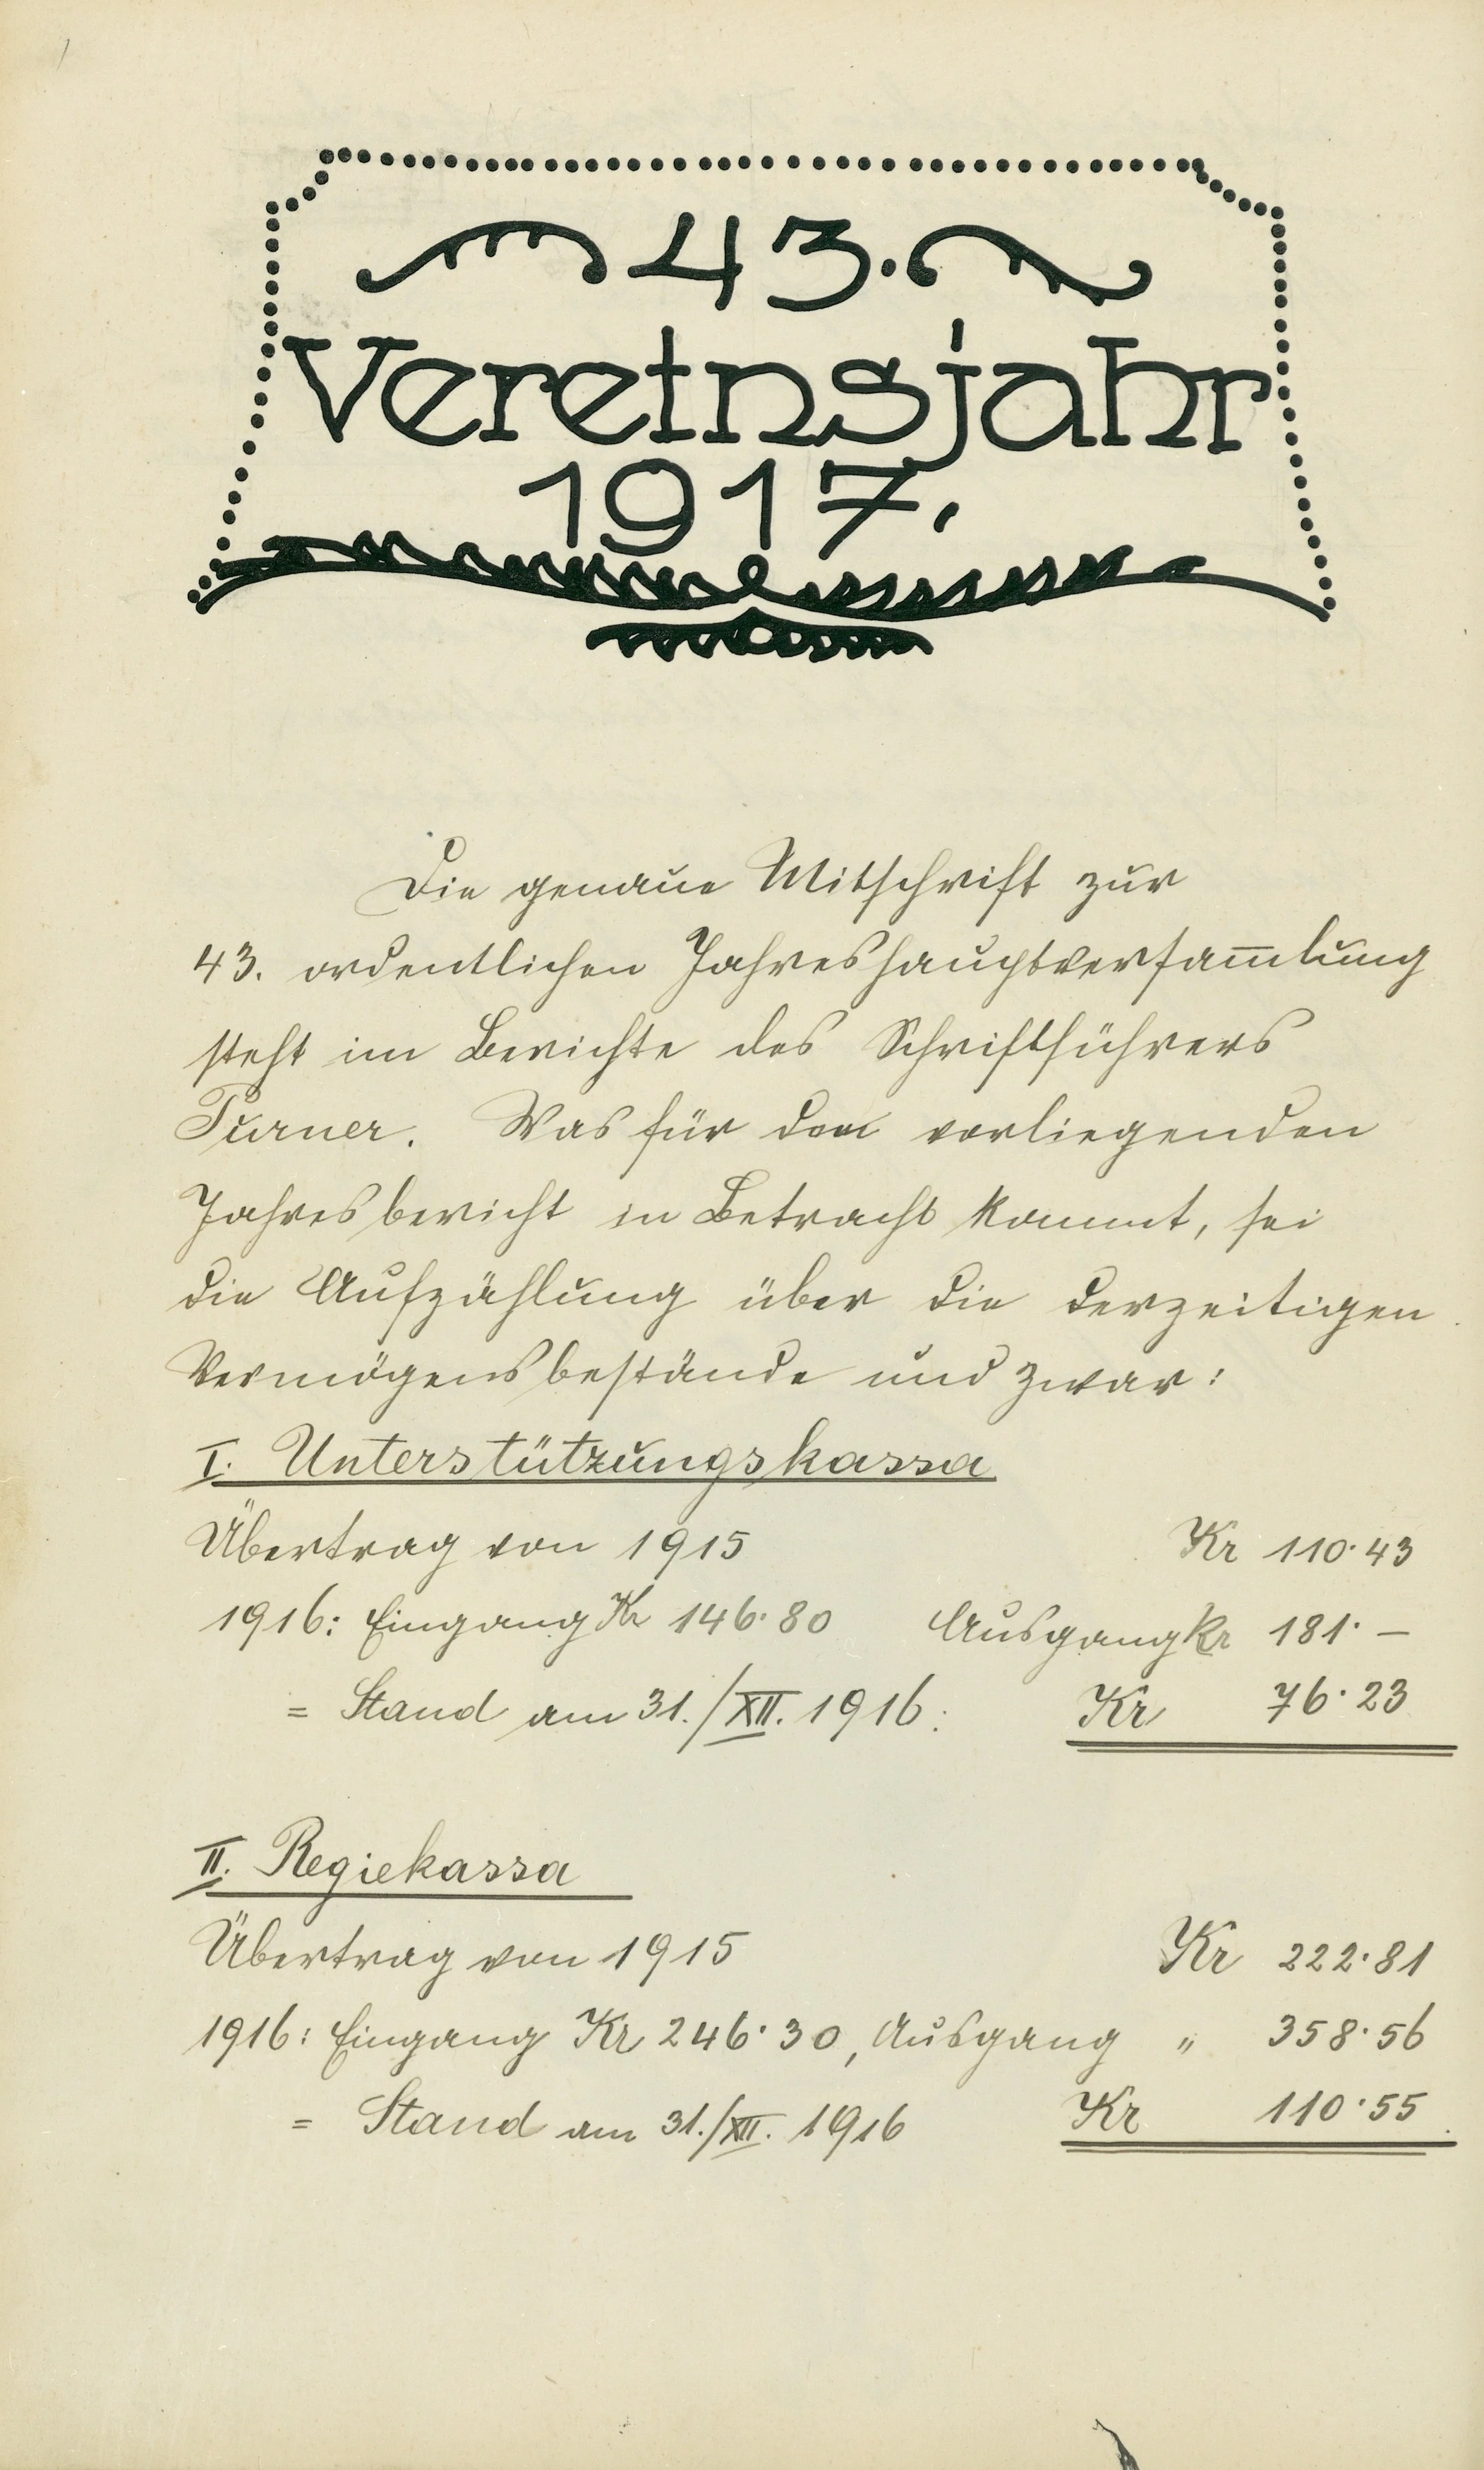 43.
Vereinsjahr
1917.
Die genaue Mitschrift zur
43. ordentlichen Jahreshauptversam̅lung
steht im Berichte des Schriftführers
Turner. Was für den vorliegenden
Jahresbericht in Betracht kommt, sei
die Aufzählung über die derzeitigen
Vermögensbestände und zwar:
I. Unterstützungskassa
Übertrag von 1915 Kr 110·43
1916: Eingang Kr 146·80 Ausgang Kr 181·—
= Stand am 31./XII. 1916: Kr 76·23
II. Regiekassa
Übertrag von 1915 Kr 222·81
1916: Eingang Kr 246·30, Ausgang „ 358·56
= Stand am 31./XII. 1916 Kr 110·55